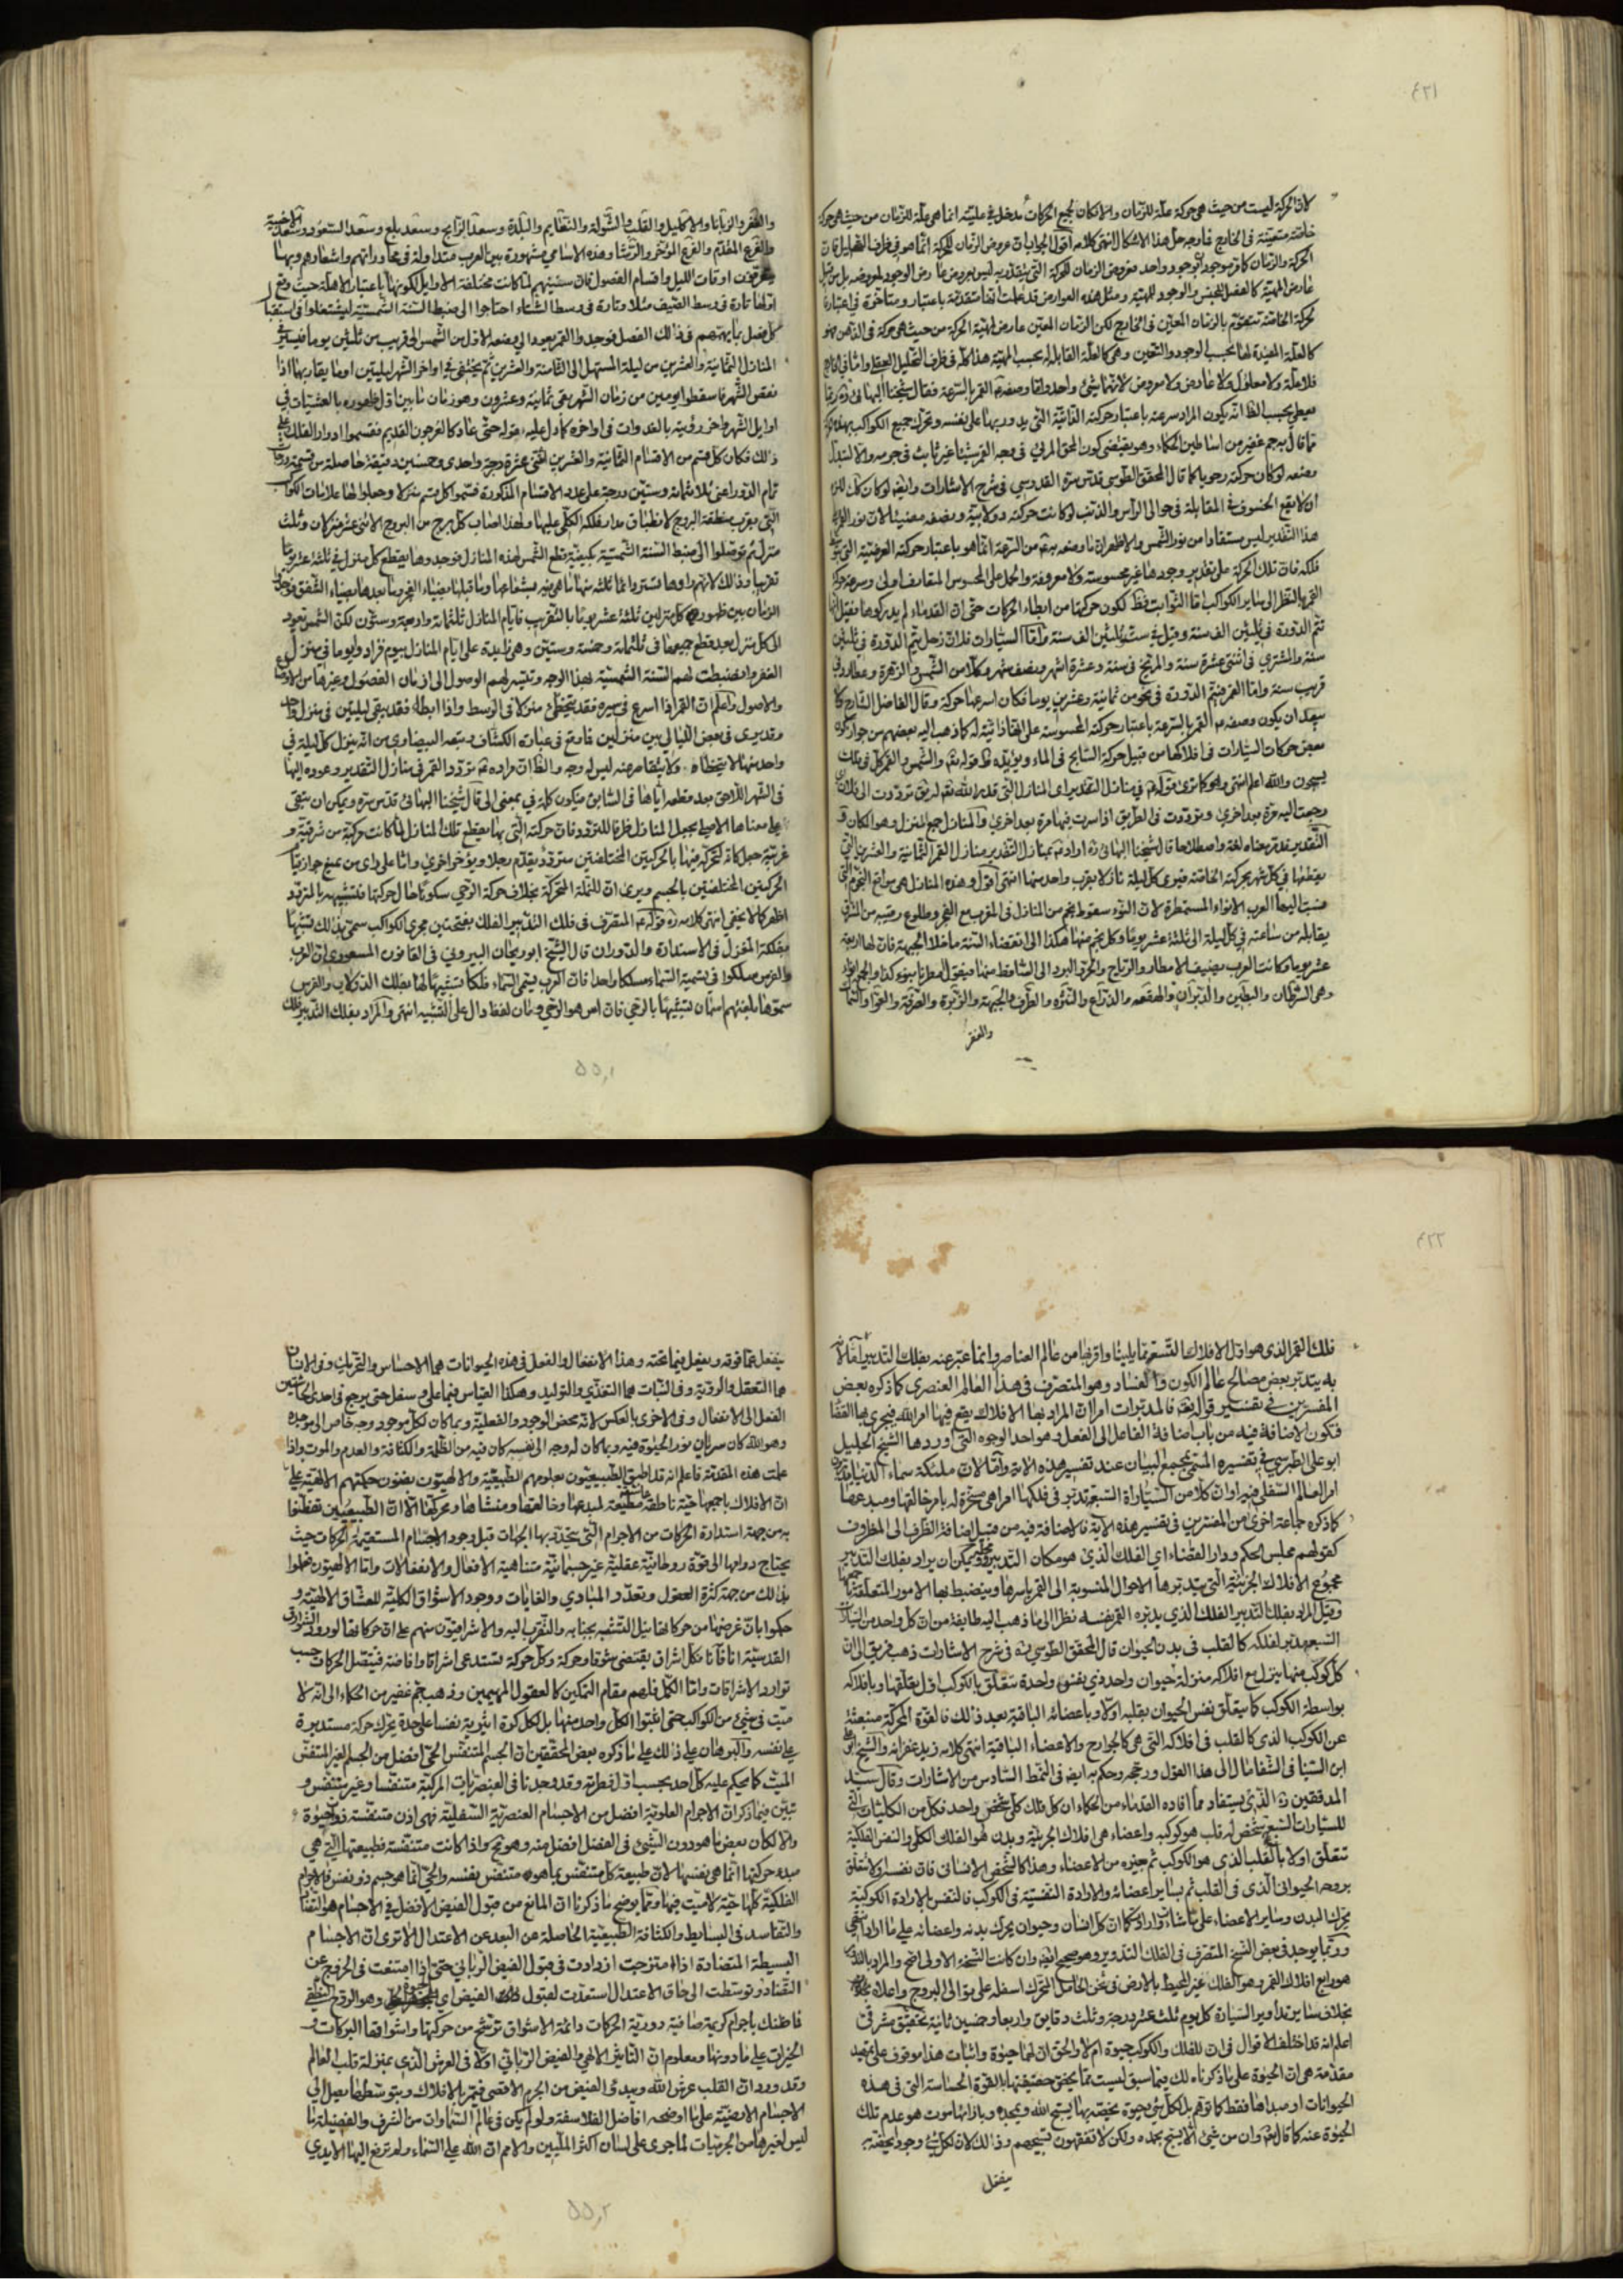 ٤٢١
لان الحركة ليست من حيث هي حركة علة للزمان والا لكان لجميع الحركات مدخل في عليته انما هي علة للزمان من حيث هي حركة
خاصة متعينة في الخارج فاوجه حل هذا الاشكال انتهى كلامه اقول الجواب ان عروض الزمان للحركة انما هو في ظرف التحليل فان
الحركة والزمان كامر موجودان بوجود واحد فعروض الزمان للحركة التي يتقدر به ليس كعروض عارض الوجود لمعروضه بل من قبيل
عارض المهية كالفصل للجنس والوجود للمهية ومثل هذه العوارض قد علمت انها متقدمة باعتبار ومتاخرة في اعتبار
الحركة الخاصة تتقوم بالزمان المعين في الخارج لكن الزمان المعين عارض لمهية الحركة من حيث هي حركة في الذهن فهو
كالعلة المفيدة لها بحسب الوجود والتعين وهي كالعلة القابلة له بحسب المهية هذا كله في ظرف التحليل العقلي واما في الخارج
فلا علة ولا معلول ولا عارض ولا معروض لانهما شيء واحد واما وصفه القمر بالسرعة فقال شيخنا البهائي ره ربما
يعطي بحسب الظ انه يكون المراد سرعته باعتبار حركته الذاتية التي يدور بها على نفسه وتحرك جميع الكواكب بهذه الحركة
مما قال به جم غفير من اساطين الحكماء وهو يقتضي كون المحو المرئي في وجه القمر شيئا غير ثابت في جرمه والا لتبدل
وضعه لو كان حركته رحويا كما قال المحقق الطوسي قدس سره القدوسي في شرح الاشارات وايضه لو كان كك للزم
ان لا يقع الخسوف في المقابلة في حوالي الراس والذنب لو كانت حركته دولابية ونصفه مضيئا لان نور القمر
هذا التقدير ليس مستفادا من نور الشمس والاظهر ان ما وصفه به من السرعة انما هو باعتبار حركته العرضية التي بتوسط
فلكه فان تلك الحركة على تقدير وجودها غير محسوسة ولا معروفة والحمل على المحسوس المتعارف اولى وسرعة حركة
القمر بالنظر الى ساير الكواكب اما الثوابت فظ لكون حركتها من ابطاء الحركات حتى ان القدماء لم يدركوها فقيل انها
تتم الدورة في ثلثين الف سنة وقيل في ستة وثلثين الف سنة واما السيارات فلان زحل يتم الدورة في ثلثين
سنة والمشتري في اثنتي عشرة سنة والمريخ في سنة وعشرة اشهر ونصف شهر وكلا من الشمس والزهرة وعطارد في
قريب سنة واما القمر فيتم الدورة في نحو من ثمانية وعشرين يوما فكان اسرعها حركة وقال الفاضل الشارح لا
يبعد ان يكون وصفه القمر بالسرعة باعتبار حركته المحسوسة على انها ذاتية له كما ذهب اليه بعضهم من جواز كون
بعض حركات السيارات في افلاكها من قبيل حركة السابح في الماء ويؤيده ظ قوله تعه والشمس والقمر كل في فلك
يسبحون والله اعلم انتهى وهو كما ترى قوله في منازل التقدير اي المنازل التي قدرها الله تعه له يق ترددت الى فلان اي
رجعت اليه مرة بعد اخرى وترددت في الطريق اذا سرت فيها مرة بعد اخرى والمنازل جمع المنزل وهو المكان و
التقدير قد مر معناه لغة واصطلاحا قال شيخنا البهائي ره اراد بمنازل التقدير منازل القمر الثمانية والعشرين التي
يقطعها في كل شهر بحركته الخاصة فيرى كل ليلة نازلا بقرب واحد منها انتهى اقول وهذه المنازل هي مواقع النجوم التي
نسبت اليها العرب الانواء المستمطرة لان النوء سقوط نجم من المنازل في المغرب مع الفجر وطلوع رقيبه من المشرق
يقابله من ساعته في كل ليلة الى ثلثة عشر يوما وكل نجم منها هكذا الى انقضاء السنة ما خلا الجبهة فان لها اربعة
عشر يوما وكانت العرب يضيف الامطار والرياح والحر والبرد الى الساقط منها فيقول مطرنا بنوء كذا والجمع انواء
وهي الشرطان والبطين والدبران والهقعة والذراع والنثرة والطرف والجبهة والزبرة والصرفة والعواء والسماك
والغفر
والغفر والزبانا والاكليل والقلب والشولة والنعايم والبلدة وسعد الذابح وسعد بلع وسعد السعود وسعد الاخبية
والفرع المقدم والفرع المؤخر والرشا وهذه الاسامي مشهورة بين العرب متداولة في محاوراتهم واشعارهم وبها
يعرفون اوقات الليل واقسام الفصول فان سنيهم لما كانت مختلفة الاوايل لكونها باعتبار الاهلة حيث وقع
اولها تارة في وسط الصيف مثلا وتارة في وسط الشتاء احتاجوا الى ضبط السنة الشمسية ليشتغلوا في استقبال
كل فصل بما يهمهم في ذلك الفصل فوجدوا القمر يعود الى وضعه الاول من الشمس في قريب من ثلثين يوما فيسير
المنازل الثمانية والعشرين من ليلة المستهل الى الثامنة والعشرين ثم يختفي في اواخر الشهر لليلتين او ما يقاربهما اذا
نقص الشهر فاسقطوا يومين من زمان الشهر بقي ثمانية وعشرون وهو زمان ما بين اول ظهوره بالعشيات في
اوايل الشهر واخر رؤيته بالغدوات في اواخره كما دل عليه قوله حتى عاد كالعرجون القديم فقسموا ادوار الفلك على
ذلك فكان كل قسم من الاقسام الثمانية والعشرين اثنتي عشرة درجة واحدى وخمسين دقيقة حاصلة من قسمة درجات
تمام الدور اعني ثلاثمائة وستين درجة على عدد الاقسام المذكورة فسموا كل قسم منزلا وجعلوا لها علامات الكواكب
التي بقرب منطقة البروج لانطباق مدار فلكه الكلي عليها ولهذا اصاب كل برج من البروج الاثنى عشر منزلان وثلث
منزل ثم توصلوا الى ضبط السنة الشمسية بكيفية قطع الشمس لهذه المنازل فوجدوها يقطع كل منزل في ثلثة عشر يوما
تقريبا وذلك لانهم راوها تستر دائما ثلثة منها ما هي فيه بشعاعها وما قبلها بضياء الفجر وما بعدها بضياء الشفق فوجدوا
الزمان بين ظهوري كل منزلين ثلثة عشر يوما بالتقريب فايام المنازل ثلثمائة واربعة وستون لكن الشمس تعود
الى كل منزل بعد قطع جميعها في ثلثمائة وخمسة وستين وهي زايدة على ايام المنازل بيوم فزادوا يوما في منزل
الغفر وانضبطت لهم السنة الشمسية بهذا الوجه وتيسر لهم الوصول الى ازمان الفصول وغيرها من الاوضاع
والاصول واعلم ان القمر اذا اسرع في سيره فقد يتخطى منزلا في الوسط واذا ابطا فقد يبقى ليلتين في منزل واحد
وقد يرى في بعض الليالي بين منزلين فما وقع في عبارة الكشاف وتبعه البيضاوي من انه ينزل كل ليلة في
واحد منها لا يتخطاه ولا يتقاصر عنه ليس له وجه والظ ان مراده تردد القمر في منازل التقدير وعوده اليها
في الشهر اللاحق بعد قطعه اياها في السابق فيكون كلمة في بمعنى الى قال شيخنا البهائي قدس سره ويمكن ان يبقى
على معناها الاصلي بجعل المنازل ظرفا للتردد فان حركته التي بها يقطع تلك المنازل لما كانت مركبة من شرقية و
غربية جعل كانه لتحركه فيها بالحركتين المختلفتين متردد يقدم رجلا ويؤخر اخرى واما على راى من يمنع جواز قيام
الحركتين المختلفتين بالجسم ويرى ان للنملة المتحركة بخلاف حركة الرحى سكونا حال حركتها فتشبيهه بالمتردد
اظهر كما لا يخفى انتهى كلامه ره قوله المتصرف في فلك التدبير الفلك بفتحتين مجرى الكواكب سمي بذلك تشبيها
بفلكة المغزل في الاستدارة والدوران قال الشيخ ابو ريحان البيروني في القانون المسعودي ان العرب
والفرس سلكوا في تسمية السماء مسلكا واحدا فان العرب يسمى السماء فلكا تشبيها لها بفلك الدولاب والفرس
سموها بلغتهم اسمان تشبيها بالرحى فان اس هو الرحى ومان لفظ دال على التشبيه انتهى والمراد بفلك التدبير فلك
٥٥,١
٤٢٢
فلك القمر الذي هو اول الافلاك التسعة مما يلينا واقربها من عالم العناصر وانما عبر عنه بفلك التدبير اما لانه
به يتدبر بعض مصالح عالم الكون والفساد وهو المتصرف في هذا العالم العنصري كما ذكره بعض
المفسرين في تفسير قوله تعه فالمدبرات امرا ان المراد بها الافلاك يقع فيها امر الله فيجري بها القضاء
فتكون الاضافة فيه من باب اضافة الفاعل الى الفعل وهو احد الوجوه التي اوردها الشيخ الجليل
ابو علي الطبرسي في تفسيره المسمى بمجمع البيان عند تفسير هذه الاية واما لان ملئكة سماء الدنيا يدبرون
امر العالم السفلي فيه او ان كلا من السيارات السبعة تدبر في فلكها امرا هي مسخرة له بامر خالقها ومبدعها
كما ذكره جماعة اخرى من المفسرين في تفسير هذه الاية فالاضافة فيه من قبيل اضافة الظرف الى المظروف
كقولهم مجلس الحكم ودار القضاء اي الفلك الذي هو مكان التدبير ومحله ويمكن ان يراد بفلك التدبير
مجموع الافلاك الجزئية التي يتدبر بها الاحوال المنسوبة الى القمر باسرها وينضبط بها الامور المتعلقة به
وقيل المراد بفلك التدبير الفلك الذي يدبره القمر نفسه نظرا الى ما ذهب اليه طايفة من ان كل واحد من السيارات
السبعة مدبر لفلكه كالقلب في بدن الحيوان قال المحقق الطوسي ره في شرح الاشارات ذهب فريق الى ان
كل كوكب منها ينزل مع افلاكه منزلة حيوان واحد ذي نفس واحدة تتعلق بالكوكب اول تعلقها وبافلاكه
بواسطة الكوكب كما يتعلق نفس الحيوان بقلبه اولا وباعضائه الباقية بعد ذلك فالقوة المحركة منبعثة
عن الكوكب الذي كالقلب في افلاكه التي هي كالجوارح والاعضاء الباقية انتهى كلامه زيد غفرانه والشيخ ابو علي
ابن السينا في الشفا مال الى هذا القول ورجحه وحكم به ايضه في النمط السادس من الاشارات وقال سيد
المدققين ره الذي يستفاد مما افاده القدماء من الحكماء ان كل فلك كلي شخص واحد فكل من الكليات التي
للسيارات السبع شخص له قلب هو كوكبه واعضاء هي افلاك الجزئية وبدن هو الفلك الكلي والنفس الفلكية
تتعلق اولا بالقلب الذي هو الكوكب ثم بغيره من الاعضاء وهذا كالشخص الانساني فان نفسه اولا تتعلق
بروحه الحيواني الذي في القلب ثم بساير اعضائه والارادة النفسية في الكوكب فالنفس بالارادة الكوكبية
تحرك البدن وساير الاعضاء على ما شاءت وارادت كما ان كل انسان وحيوان يحرك بدنه واعضائه على ما اراد انتهى
وربما يوجد في بعض النسخ المتصرف في الفلك التدوير وهو صحيح ايضه وان كانت النسخة الاولى اصح والمراد بالتدوير
هو رابع افلاك القمر وهو الفلك غير المحيط بالارض في ثخن الحامل المتحرك اسفله على توالي البروج واعلاه بخلافه
بخلاف ساير تداوير السيارة كل يوم ثلث عشر درجة وثلث دقايق واربعا وخمسين ثانية تحقيق مشرقي
اعلم انه قد اختلف الاقوال في ان للفلك والكوكب حيوة ام لا والحق ان لها حيوة واثبات هذا موقوف على تمهيد
مقدمة هي ان الحيوة على ما ذكرناه لك فيما سبق ليست مما يختص حقيقتها بالقوة الحساسة التي في هذه
الحيوانات او مبداها فقط كما توهم بل لكل شيء حيوة يختصه بها يسبح الله ويمجده وبازائها موت هو عدم تلك
الحيوة عنه كما قال تعه وان من شيء الا يسبح بحمده ولكن لا تفقهون تسبيحهم وذلك لان لكل شيء وجودا يختص به
ينفعل
ينفعل عما فوقه ويفعل فيما تحته وهذا الانفعال والفعل في هذه الحيوانات هما الاحساس والتحريك وفي الانسان
هما التعقل والروية وفي النبات هما التغذي والتوليد وهكذا القياس فيما علا وسفل حتى يرجع في احدى الحاشيتين
الفعل الى الانفعال وفي الاخرى بالعكس لانه محض الوجود والفعلية وبما كان لكل موجود وجه خاص الى موجده
وهو الله كان سريان نور الحيوة فيه وبما كان له وجه الى نفسه كان فيه من الظلمة والكثافة والعدم والموت واذا
علمت هذه المقدمة فاعلم انه قد اطبق الطبيعيون بعلومهم الطبيعية والالهيون بفنون حكمتهم الالهية على
ان الافلاك باجمعها حية ناطقة عاشقة مطيعة لمبدعها وخالقها ومنشاها ومحركها الا ان الطبيعيين تفطنوا
به من جهة استدارة الحركات من الاجرام التي يتحدد بها الجهات قبل وجود الاجسام المستقيمة الحركات حيث
يحتاج دوامها الى قوة روحانية عقلية غير جسمانية متناهية الافعال والانفعالات واما الالهيون فعلموا
بذلك من جهة كثرة العقول وتعدد المبادي والغايات ووجود الاشواق الكلية للعشاق الالهية و
حكموا بان غرضها من حركاتها نيل التشبه بجنابه والتقرب اليه والاشراقيون منهم على ان حركاتها لورود الشوارق
القدسية انا فانا فكل اشراق يقتضي شوقا وحركة وكل حركة تستدعي اشراقا وافاضة فيتصل الحركات حسب
توارد الاشراقات واما الكمل فلهم مقام التمكين كالعقول المهيمين وذهب جم غفير من الحكماء الى انه لا
ميت في شيء من الكواكب حتى اثبتوا لكل واحد منها بل لكل كرة اثيرية نفسا على حدة يحرك حركة مستديرة
على نفسه والبرهان على ذلك على ما ذكره بعض المحققين ان الجسم المتنفس الحي افضل من الجسم الغير المتنفس
الميت كما يحكم عليه كل احد بحسب اول فطرته وقد وجدنا في العنصريات المركبة متنفسا وغير متنفس و
تبين فيما ذكر ان الاجرام العلوية افضل من الاجسام العنصرية السفلية فهي اذن متنفسة ذو حيوة
والا لكان بعض ما هو دون الشيء في الفضل افضل منه وهو مح واذا كانت متنفسة فطبيعتها التي هي
مبدء حركتها انما هي نفسها لان طبيعة كل متنفس بما هو متنفس نفسه والحي انما هو جسم ذو نفس فالاجرام
الفلكية كلها حية لا ميت فيها ومما يوضح ما ذكرنا ان المانع من قبول الفيض الافضل في الاجسام هو التضاد
والتفاسد في البسايط والكثافة الطبيعية الحاصلة عن البعد عن الاعتدال الا ترى ان الاجسام
البسيطة المتضادة اذا امتزجت ازدادت في قبول الفيض الرباني حتى اذا امتنعت في الخروج عن
التضاد وتوسطت الى حاق الاعتدال استعدت لقبول الفيض اي وهو الروح النطقي
فاظنك باجرام كريمة صافية دورية الحركات دائمة الاشواق ترشح من حركتها واشواقها البركات و
الخيرات على ما دونها ومعلوم ان التاثير الالهي والفيض الرباني اولا في العرش الذي بمنزلة قلب العالم
وقد ورد ان القلب عرش الله ويبدئ الفيض من الجرم الاقصى فيمر بالافلاك وبتوسطها يصل الى
الاجسام الارضية على ما اوضحه افاضل الفلاسفة ولو لم يكن في عالم السماوات من الشرف والفضيلة ما
ليس لغيرها من الجرميات لما جرى على لسان اكثر المليين والامم ان الله على السماء ولم ترفع اليها الايدي
٥٥,٢